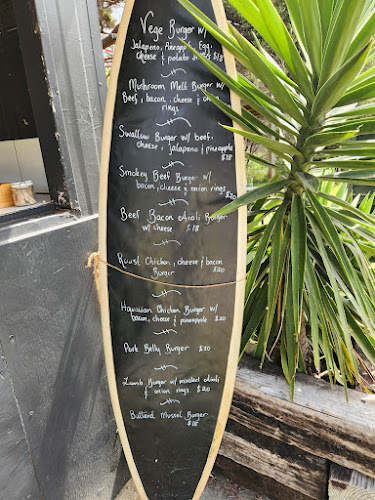 Vege Burger w/
Jalapeno, Pineapple, Egg,
cheese & potato $18
Mushroom Melt Burger w/
Beef, bacon, cheese & onion
rings
Swallow Burger w/ beef,
cheese, jalapeno & pineapple
$18
Smokey Beef Burger w/
bacon, cheese & onion rings
$20
Beef Bacon Aioli Burger
w/ cheese $18
Roast Chicken, cheese & bacon
Burger $20
Hawaiian Chicken Burger w/
bacon, cheese & pineapple $20
Pork Belly Burger $20
Lamb Burger w/ Aioli
& onion rings $20
Battered Mussel Burger
$18